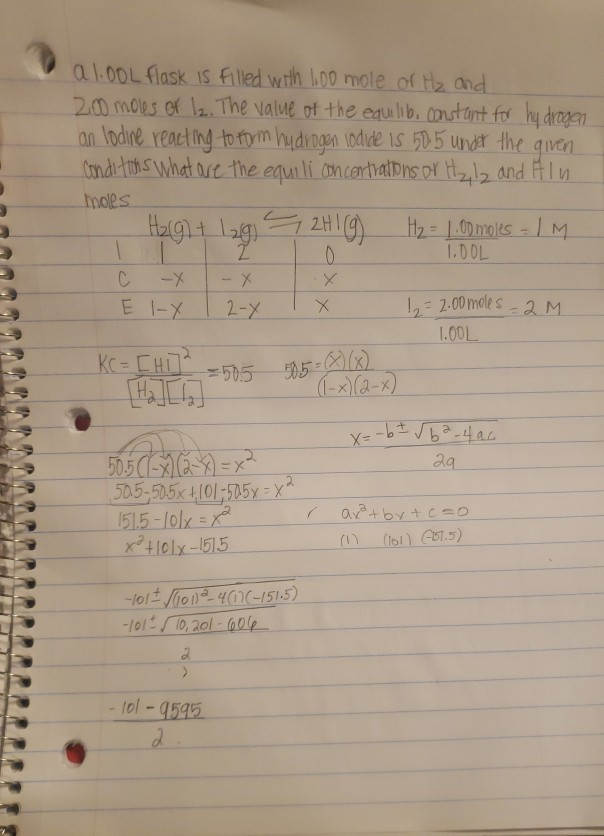 a 1.00L flask is filled with 1.00 mole of H2 and
2.00 moles of I2. The value of the equilib. constant for hydrogen
an Iodine reacting to form hydrogen iodide is 50.5 under the given
conditions What are the equili concentrations of H2, I2 and HI in
moles
H2(g) + I2(g) ⇌ 2HI(g)   H2 = 1.00 moles / 1.00L = 1 M
I 1 | 2 | 0
C -x | -x | x
E 1-x | 2-x | x   I2 = 2.00 moles / 1.00L = 2 M
KC = [HI]^2 / [H2][I2] = 50.5   50.5 = (x)(x) / (1-x)(2-x)
x = -b ± √b^2-4ac / 2a
50.5(1-x)(2-x) = x^2
50.5-50.5x+101-50.5x = x^2
151.5-101x = x^2   ax^2+bx+c=0
x^2+101x-151.5   (1) (101) (-151.5)
-101 ± √(101)^2-4(1)(-151.5)
-101 ± √10,201-606
2
-101 - 9595
2